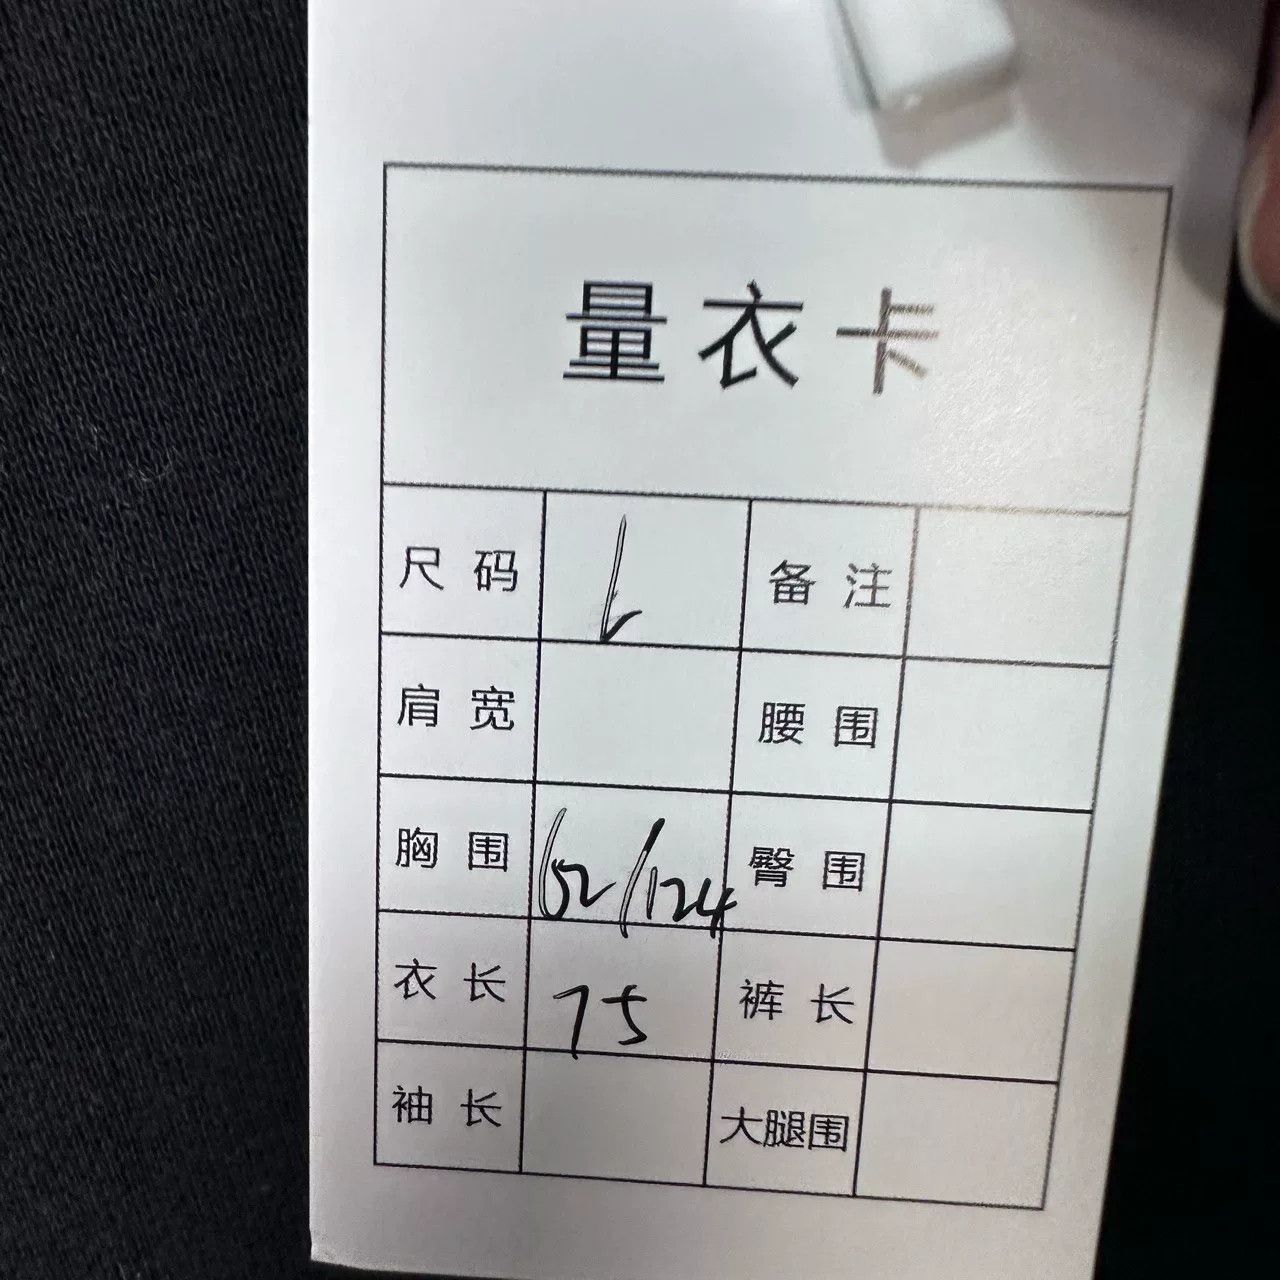 量衣卡
尺码 L 备注
肩宽 腰围
胸围 62/124 臀围
衣长 75 裤长
袖长 大腿围